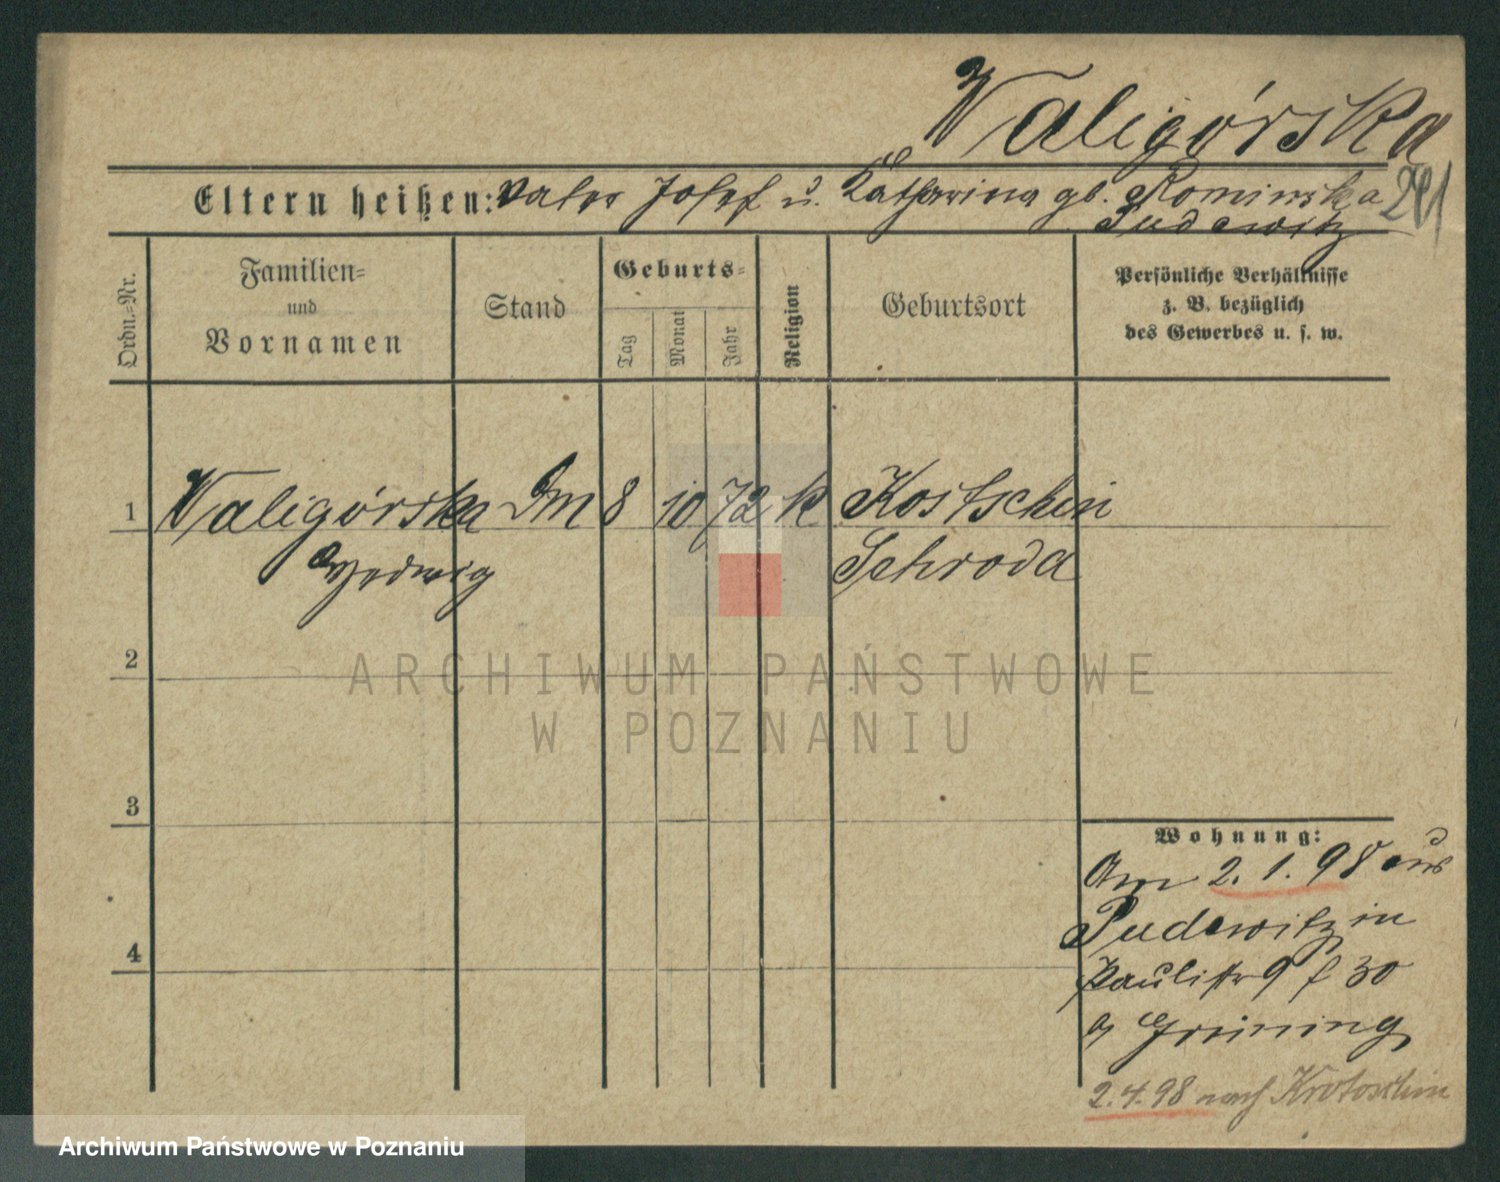 Waligórska
Eltern heißen: Vater Josef u. Katharina gb. Rominska
Pudewitz
Ordn.-Nr.
Familien-
und
Vornamen
Stand
Geburts-
Tag
Monat
Jahr
Religion
Geburtsort
Persönliche Verhältnisse
z. B. bezüglich
des Gewerbes u. s. w.
1 Waligórska DM 8 10 72 k Kostschin
Hedwig Schroda
2
ARCHIWUM PAŃSTWOWE
W POZNANIU
3
4
Wohnung:
Am 2. 1. 98 aus
Pudewitz in
Paulistr 9 f 30
Greining
2.4.98 nach Krotoschin
Archiwum Państwowe w Poznaniu